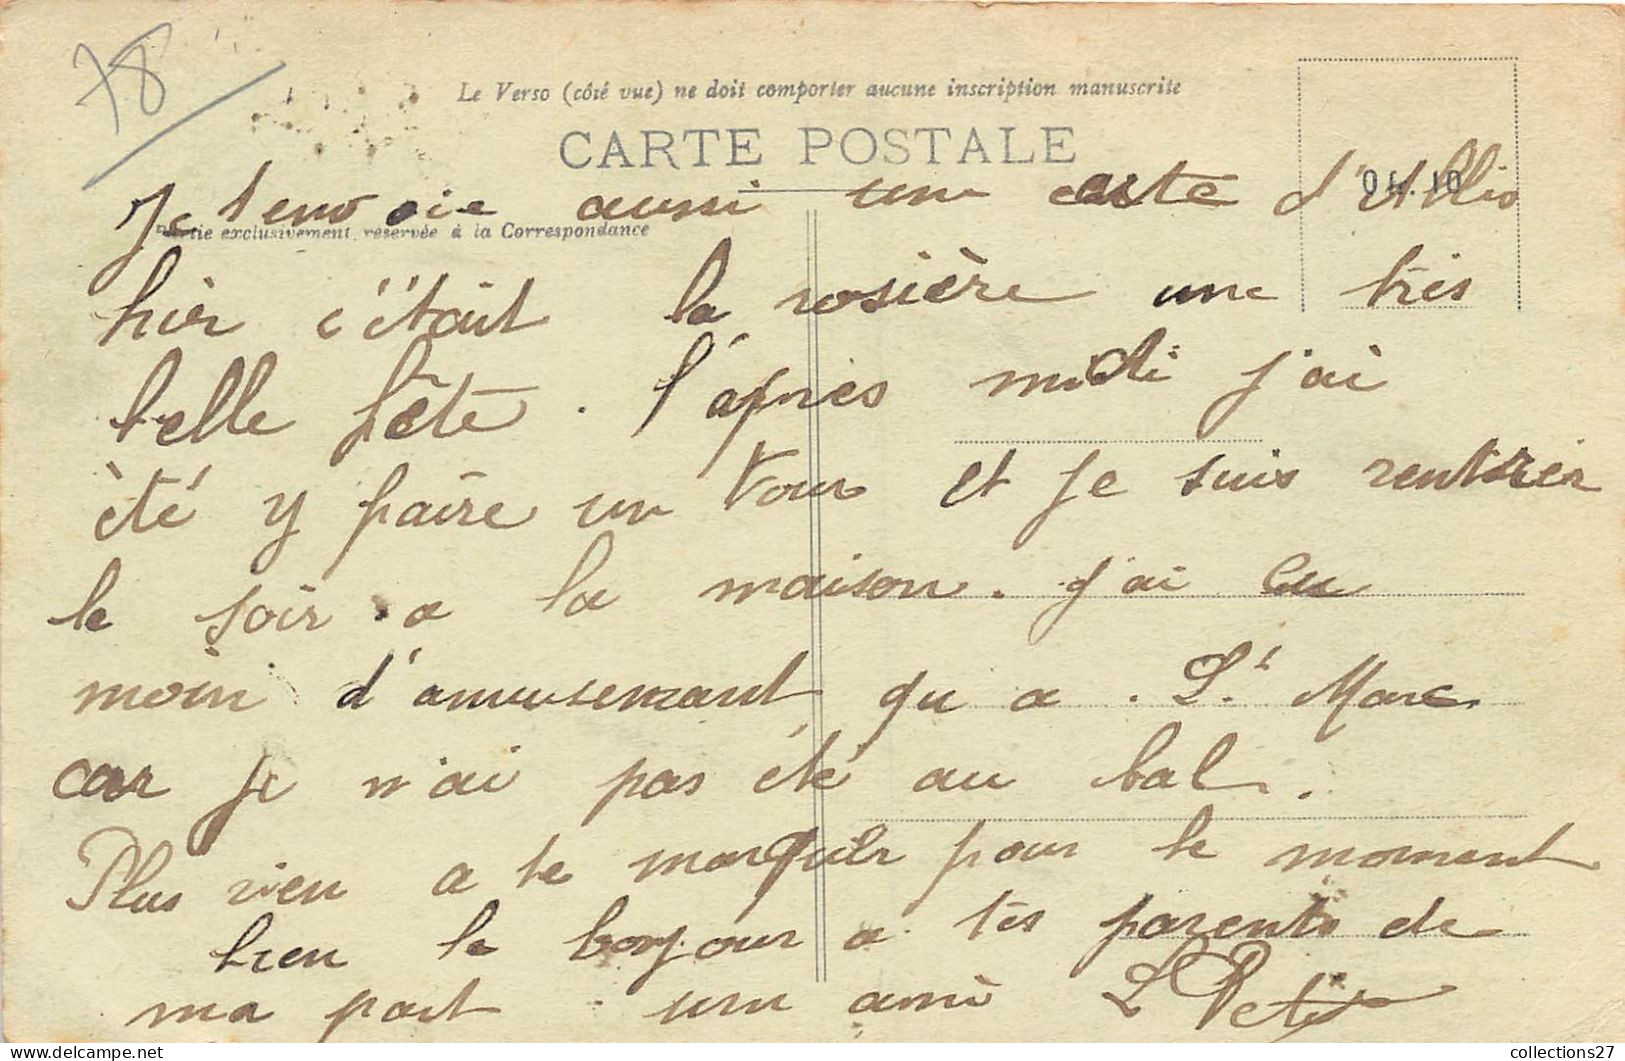 78
Le Verso (côté vue) ne doit comporter aucune inscription manuscrite
CARTE POSTALE
Partie exclusivement réservée à la Correspondance
Je t'envoie aussi une carte d'Ablis
hièr c'était la rosière une très
belle fête. l'après midi j'ai
èté y faire un tour et je suis rentrer
le soir a la maison. j'ai eu
moin d'amusement qu a St. Marc
car je n'ai pas été au bal.
Plus rien a te marquer pour le moment
bien le bonjour a tes parents de
ma part un ami L Petit
collections27